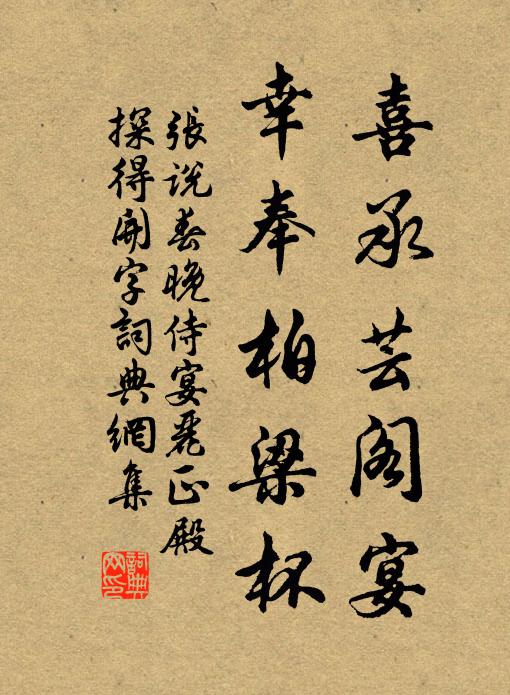 喜承芸阁宴
幸奉柏梁杯
張说春晚侍宴麗正殿
探得開字詞典網集
詞典網印